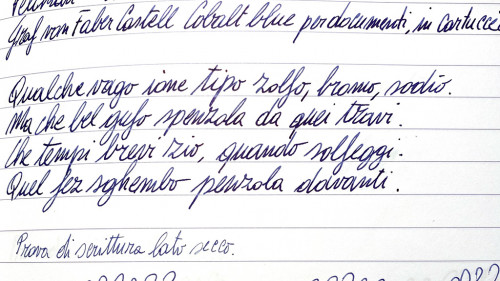 Graf von Faber Castell Cobalt blue per documenti, in cartucce
Qualche vago ione tipo zolfo, bromo, sodio.
Ma che bel gufo spenzola da quei travi.
Che tempi brevi zio, quando solfeggi.
Quel fez sghembo penzola davanti.
Prova di scrittura lato secco.